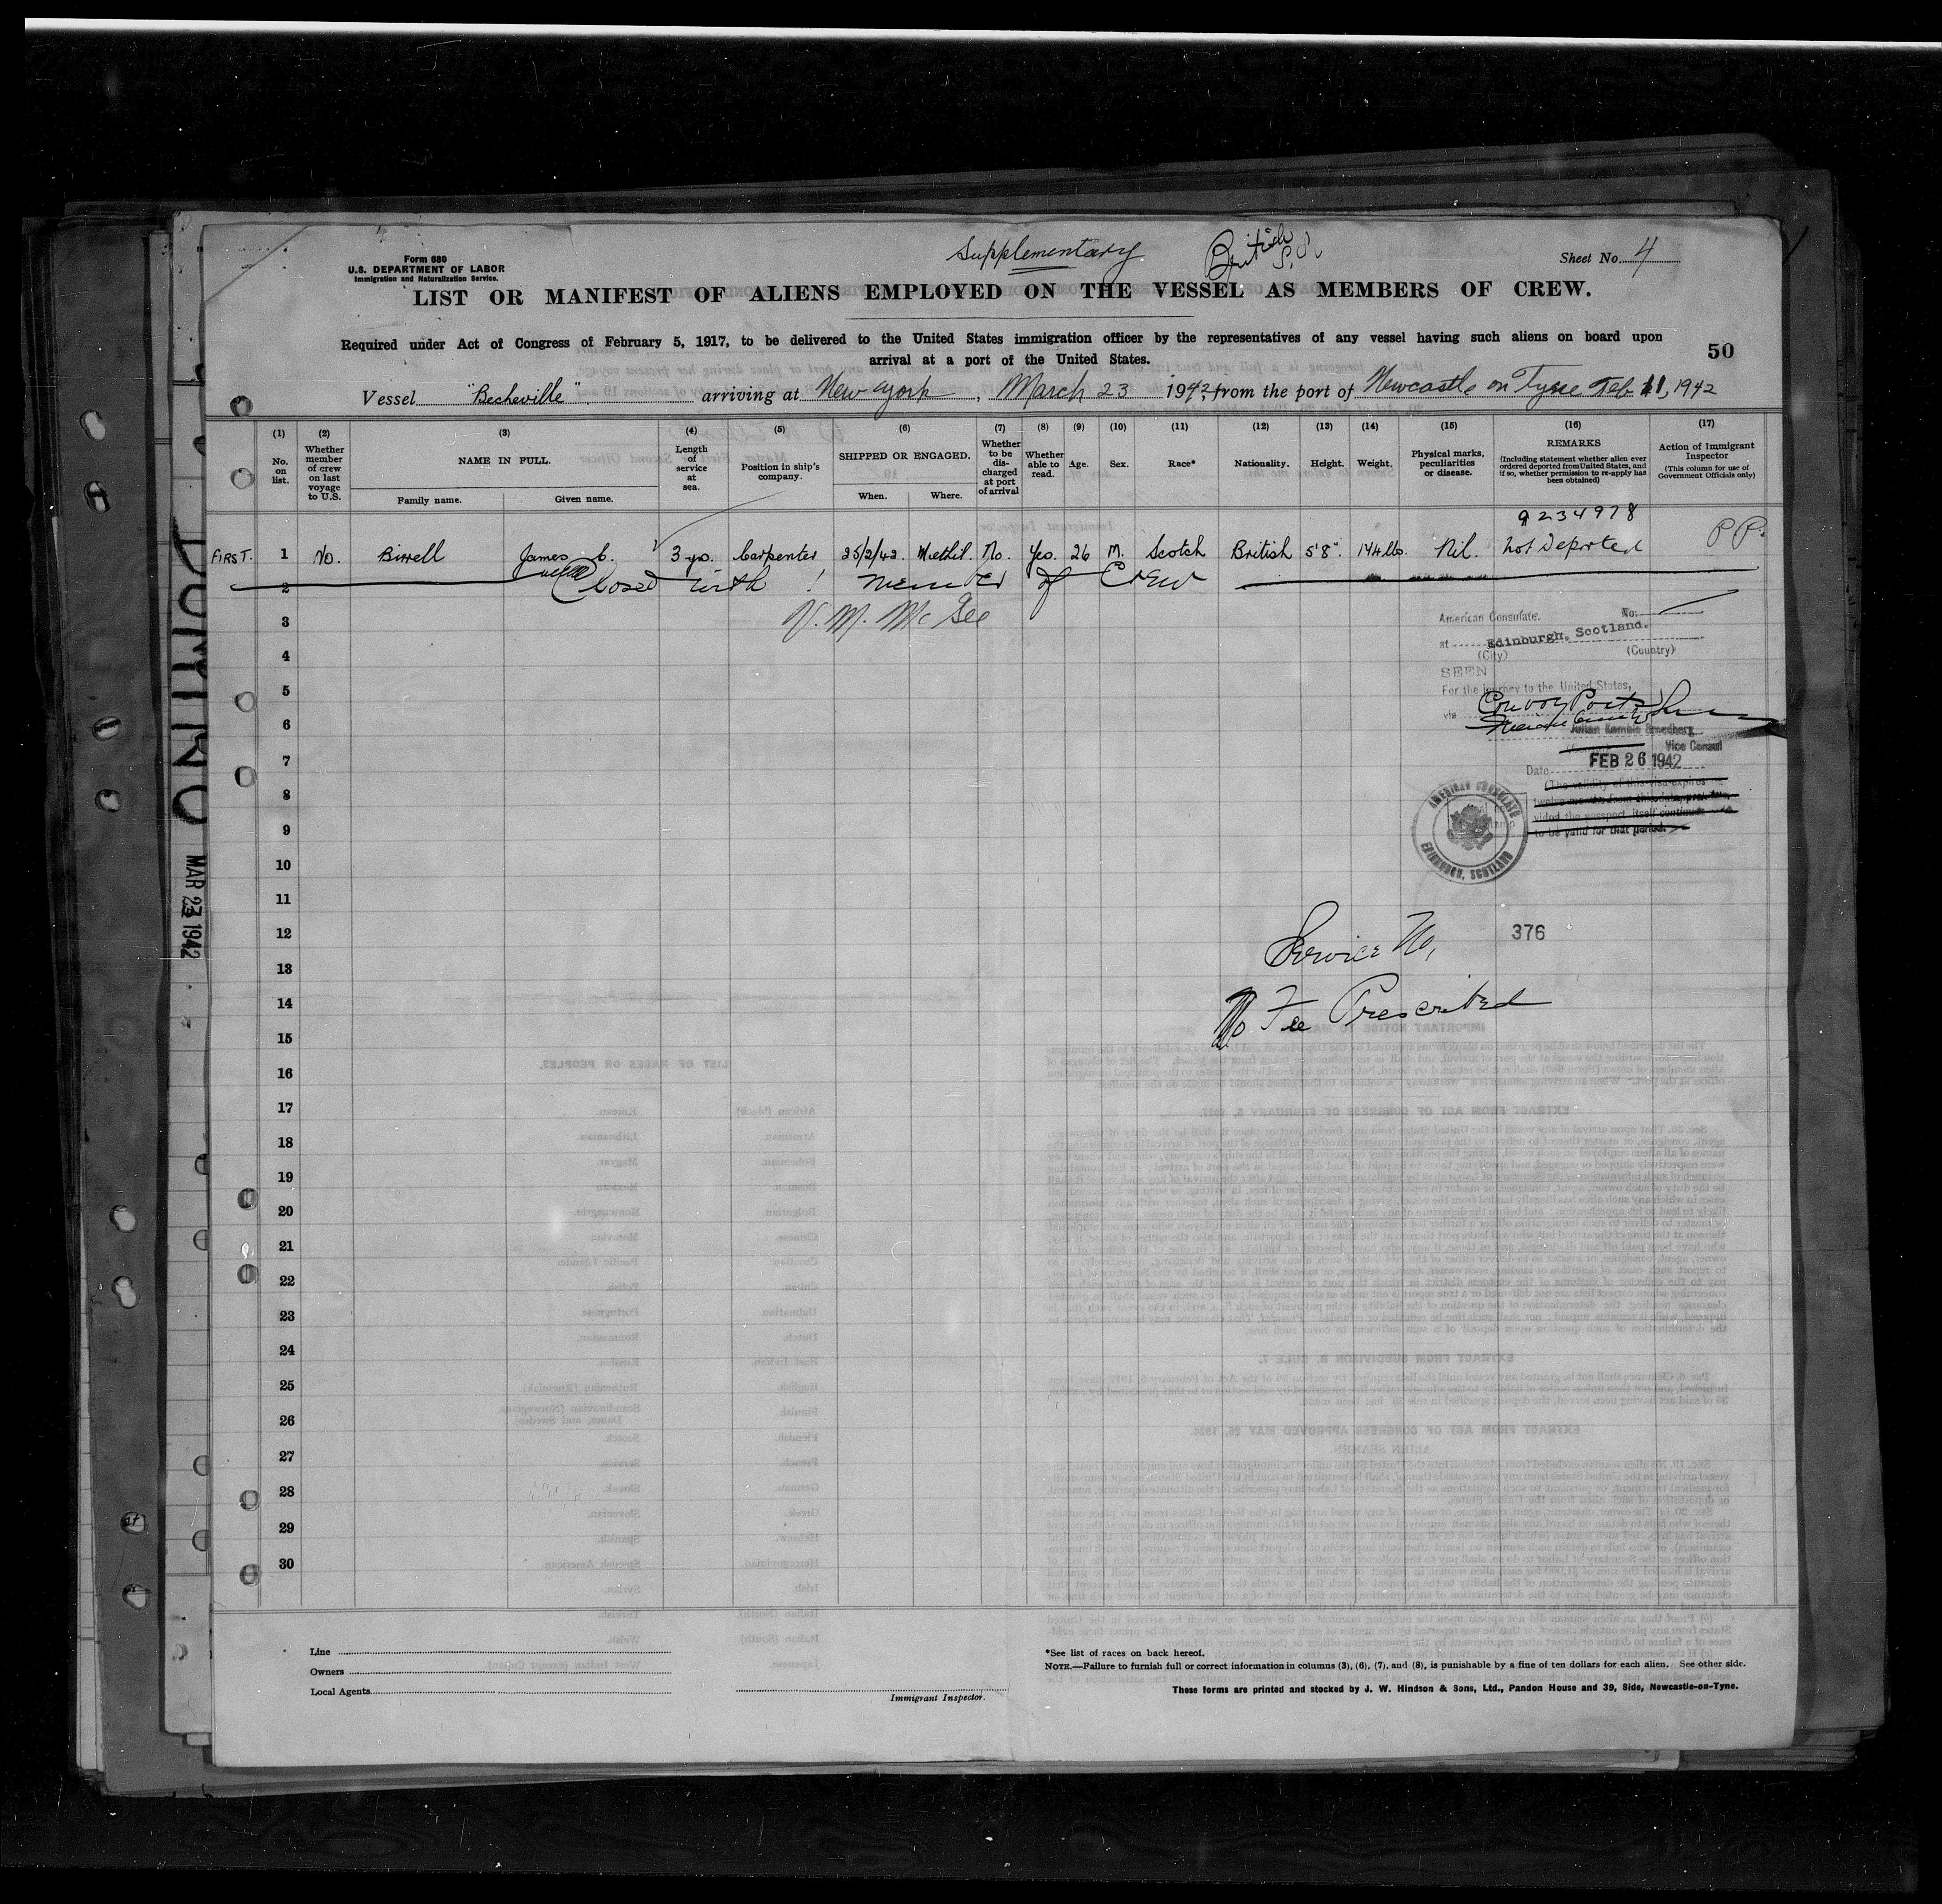 Supplementary
British S.S.
Form 680
U.S. DEPARTMENT OF LABOR
Immigration and Naturalization Service.
Sheet No. 4
LIST OR MANIFEST OF ALIENS EMPLOYED ON THE VESSEL AS MEMBERS OF CREW.
Required under Act of Congress of February 5, 1917, to be delivered to the United States immigration officer by the representatives of any vessel having such aliens on board upon
arrival at a port of the United States.
50
Vessel "Becheville" arriving at New York, March 23 1942, from the port of Newcastle on Tyne Feb 11, 1942
(1) No. on list.
(2) Whether member of crew on last voyage to U.S.
(3) NAME IN FULL. Family name. Given name.
(4) Length of service at sea.
(5) Position in ship's company.
(6) SHIPPED OR ENGAGED. When. Where.
(7) Whether to be discharged at port of arrival
(8) Whether able to read.
(9) Age.
(10) Sex.
(11) Race*
(12) Nationality.
(13) Height.
(14) Weight.
(15) Physical marks, peculiarities or disease.
(16) REMARKS (Including statement whether alien ever ordered deported from United States, and if so, whether permission to re-apply has been obtained)
(17) Action of Immigrant Inspector (This column for use of Government Officials only)
9234978
FIRST. 1 No. Birrell James C. 3 yrs. Carpenter 25/2/42. Methil. No. Yes. 26 M. Scotch British 5'8". 144 lbs. Nil. Not Deported PP.
2 Closed with 1 member of Crew
3 V. M. McGee
American Consulate. No.
4
at Edinburgh, Scotland.
(City) (Country)
SEEN
5
For the journey to the United States,
6
via Convoy Ports
Vice Consul
7
Date FEB 26 1942
(The validity of this visa expires
8
twelve months from this date, pro-
vided the passport itself continues
9
to be valid for that period.
AMERICAN CONSULATE
EDINBURGH, SCOTLAND
10
11
12
Service No. 376
13
14
No Fee Prescribed
15
16
17
18
19
20
21
22
23
24
25
26
27
28
29
30
MAR 23 1942
Line
Owners
Local Agents
Immigrant Inspector.
*See list of races on back hereof.
NOTE.—Failure to furnish full or correct information in columns (3), (6), (7), and (8), is punishable by a fine of ten dollars for each alien. See other side.
These forms are printed and stocked by J. W. Hindson & Sons, Ltd., Pandon House and 39, Side, Newcastle-on-Tyne.